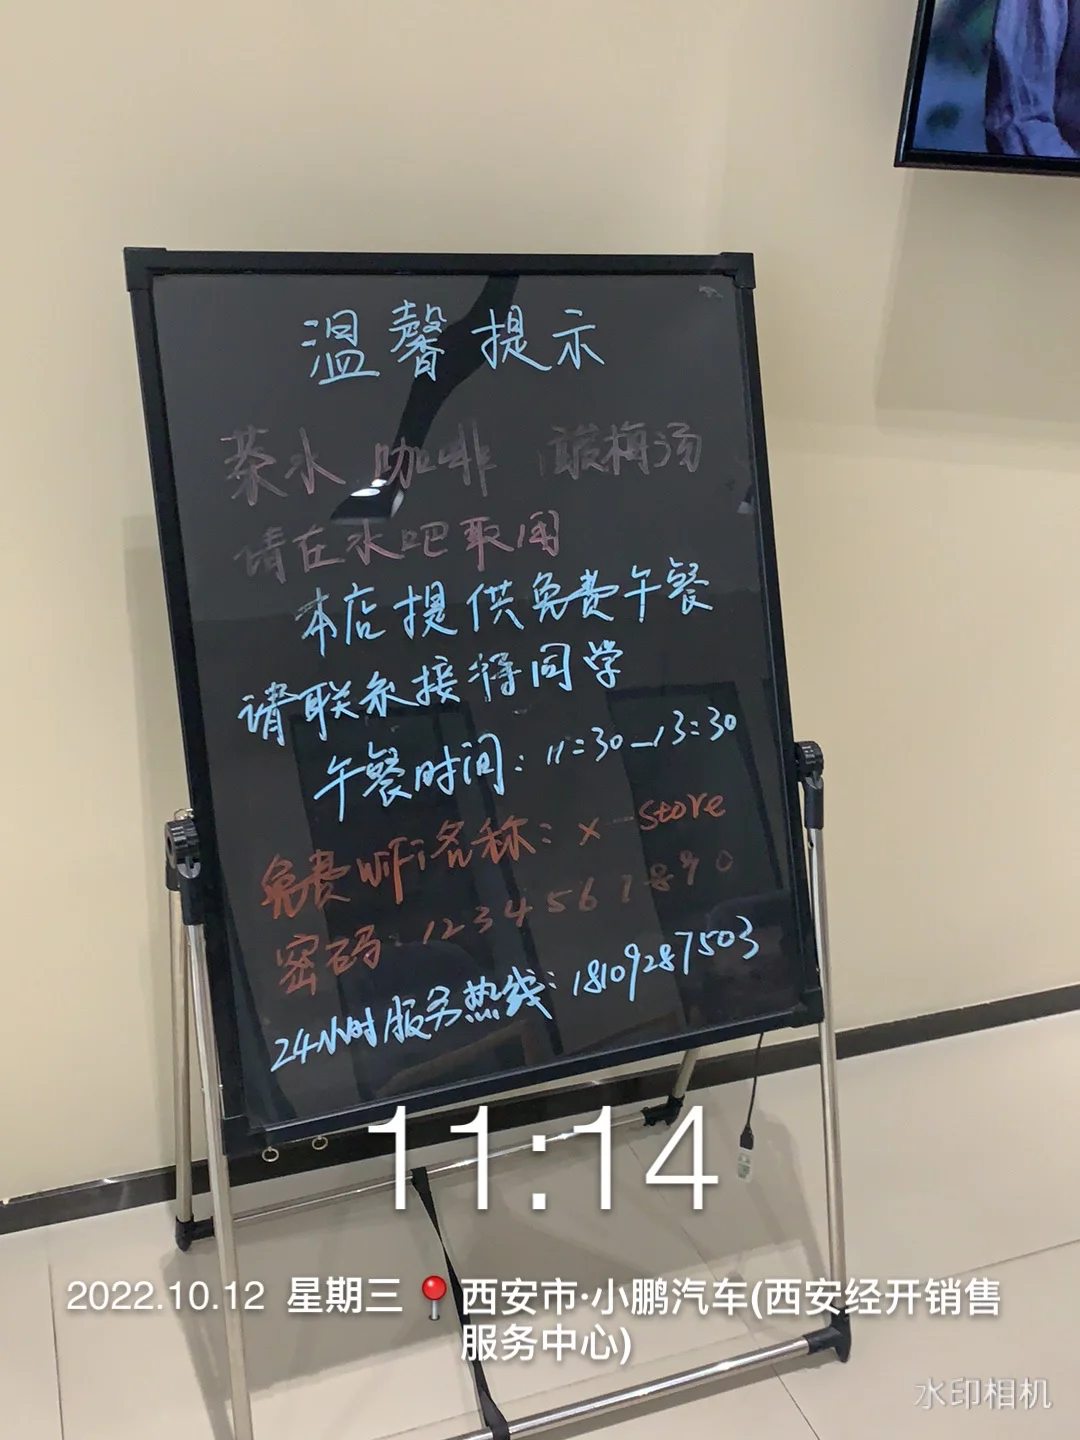 温馨提示
茶水 咖啡 酸梅汤
请在水吧取用
本店提供免费午餐
请联系接待同学
午餐时间：11:30—13:30
免费WiFi名称：x-store
密码：1234567890
24小时服务热线：18109287503
11:14
2022.10.12 星期三 西安市·小鹏汽车(西安经开销售
服务中心)
水印相机